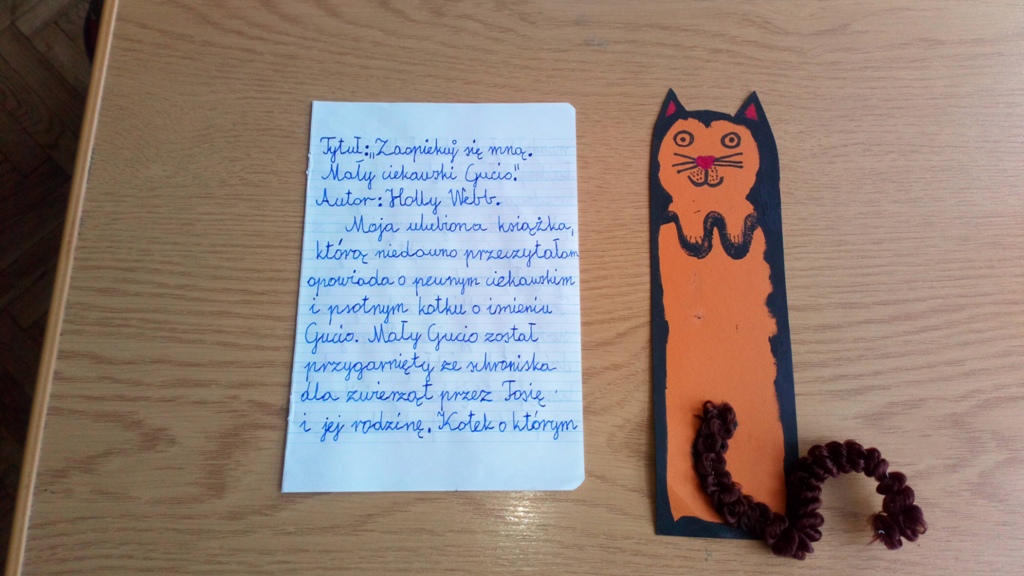 Tytuł: „Zaopiekuj się mną.
Mały ciekawski Gucio."
Autor: Holly Webb.
Moja ulubiona książka,
którą niedawno przeczytałam
opowiada o pewnym ciekawskim
i psotnym kotku o imieniu
Gucio. Mały Gucio został
przygarnięty ze schroniska
dla zwierząt przez Tosię
i jej rodzinę. Kotek o którym